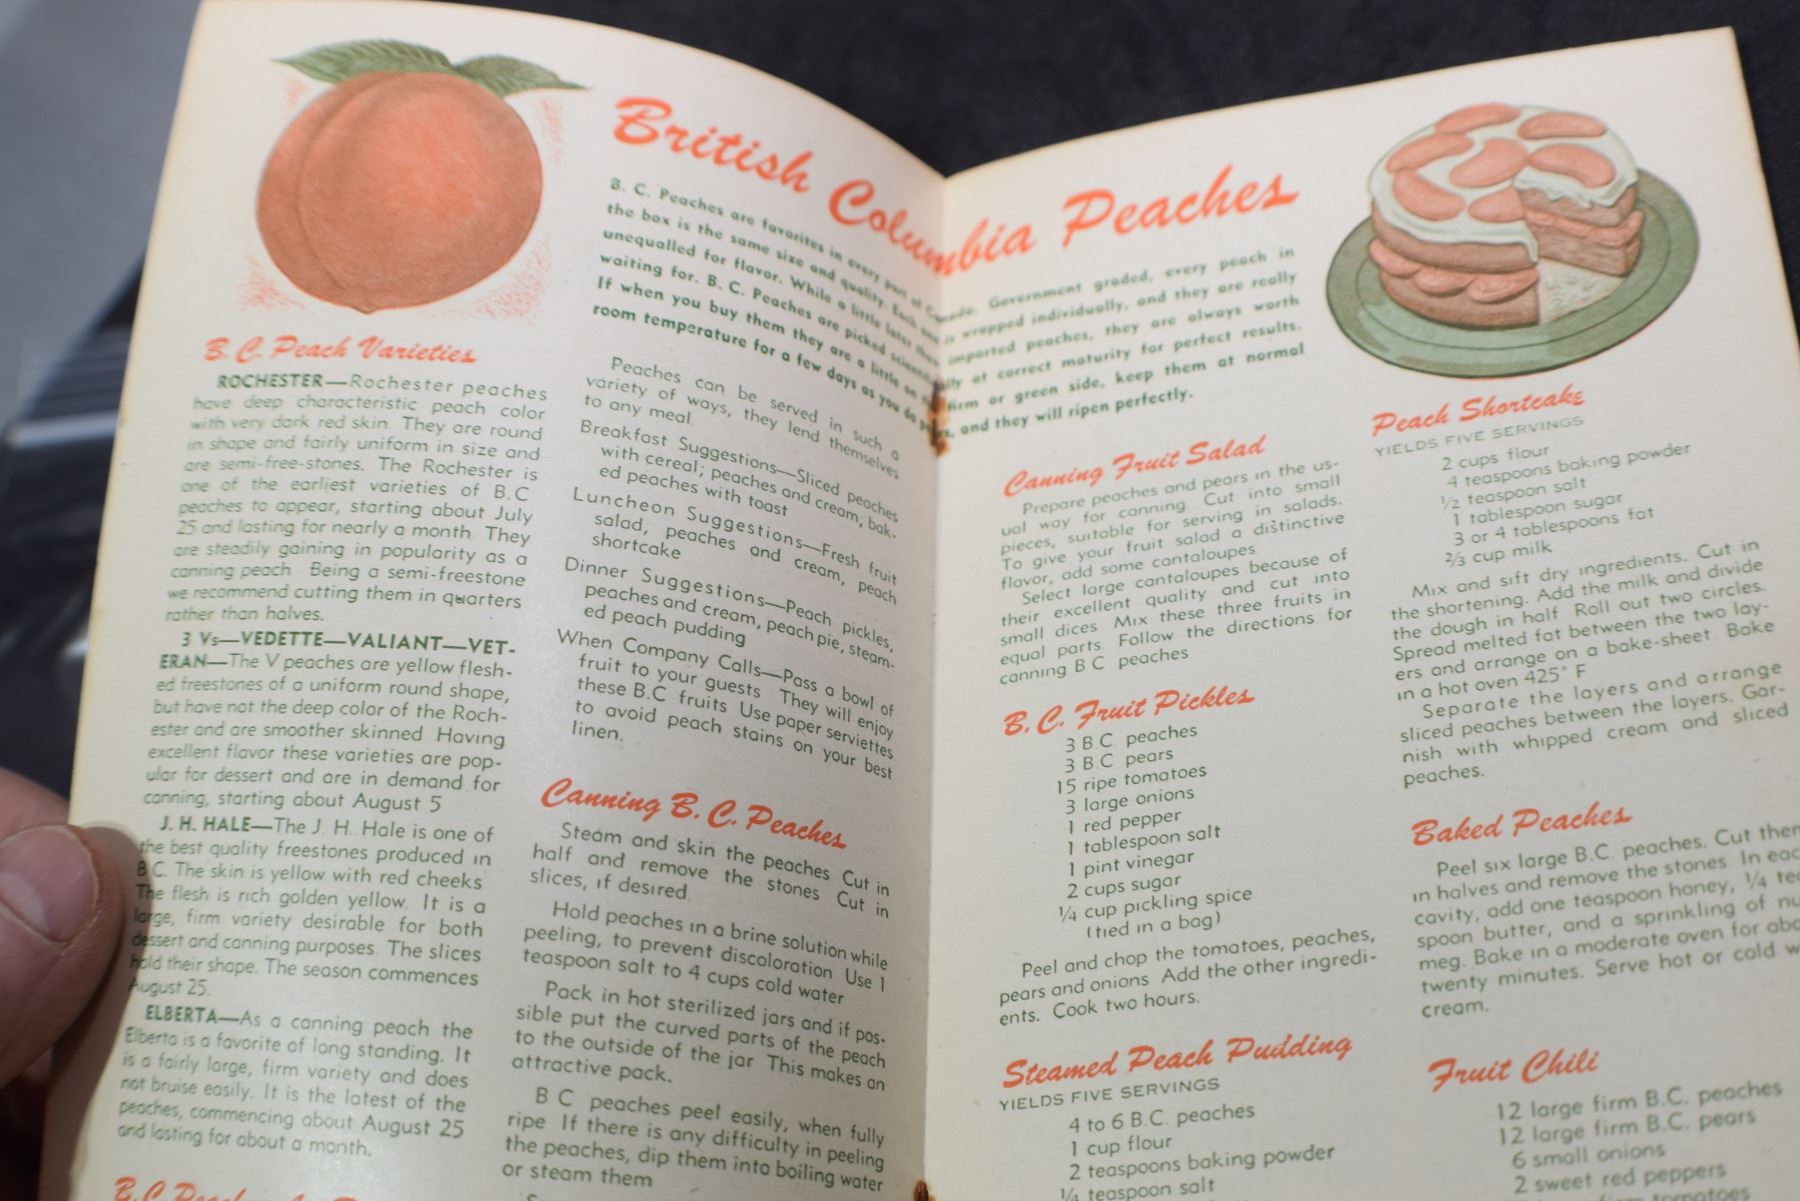 British Columbia Peaches
B. C. Peaches are favorites in every part of Canada. Government graded, every peach in
the box is the same size and quality. Each one is wrapped individually, and they are really
unequalled for flavor. While a little later than imported peaches, they are always worth
waiting for. B. C. Peaches are picked scientifically at correct maturity for perfect results.
If when you buy them they are a little on the firm or green side, keep them at normal
room temperature for a few days as you do pears, and they will ripen perfectly.
B. C. Peach Varieties
ROCHESTER—Rochester peaches
have deep characteristic peach color
with very dark red skin. They are round
in shape and fairly uniform in size and
are semi-free-stones. The Rochester is
one of the earliest varieties of B.C
peaches to appear, starting about July
25 and lasting for nearly a month. They
are steadily gaining in popularity as a
canning peach. Being a semi-freestone
we recommend cutting them in quarters
rather than halves.
3 Vs—VEDETTE—VALIANT—VET-
ERAN—The V peaches are yellow flesh-
ed freestones of a uniform round shape,
but have not the deep color of the Roch-
ester and are smoother skinned Having
excellent flavor these varieties are pop-
ular for dessert and are in demand for
canning, starting about August 5
J. H. HALE—The J. H. Hale is one of
the best quality freestones produced in
B.C. The skin is yellow with red cheeks
The flesh is rich golden yellow. It is a
large, firm variety desirable for both
dessert and canning purposes. The slices
hold their shape. The season commences
August 25.
ELBERTA—As a canning peach the
Elberta is a favorite of long standing. It
is a fairly large, firm variety and does
not bruise easily. It is the latest of the
peaches, commencing about August 25
and lasting for about a month.
Peaches can be served in such a
variety of ways, they lend themselves
to any meal.
Breakfast Suggestions—Sliced peaches
with cereal; peaches and cream; bak-
ed peaches with toast
Luncheon Suggestions—Fresh fruit
salad, peaches and cream, peach
shortcake
Dinner Suggestions—Peach pickles,
peaches and cream, peach pie, steam-
ed peach pudding
When Company Calls—Pass a bowl of
fruit to your guests They will enjoy
these B.C fruits Use paper serviettes
to avoid peach stains on your best
linen.
Canning B. C. Peaches
Steam and skin the peaches Cut in
half and remove the stones Cut in
slices, if desired.
Hold peaches in a brine solution while
peeling, to prevent discoloration Use 1
teaspoon salt to 4 cups cold water
Pack in hot sterilized jars and if pos-
sible put the curved parts of the peach
to the outside of the jar This makes an
attractive pack.
B C peaches peel easily, when fully
ripe If there is any difficulty in peeling
the peaches, dip them into boiling water
or steam them
Canning Fruit Salad
Prepare peaches and pears in the us-
ual way for canning. Cut into small
pieces, suitable for serving in salads.
To give your fruit salad a distinctive
flavor, add some cantaloupes
Select large cantaloupes because of
their excellent quality and cut into
small dices Mix these three fruits in
equal parts. Follow the directions for
canning B C peaches
B. C. Fruit Pickles
3 B C. peaches
3 B.C. pears
15 ripe tomatoes
3 large onions
1 red pepper
1 tablespoon salt
1 pint vinegar
2 cups sugar
1/4 cup pickling spice
(tied in a bag)
Peel and chop the tomatoes, peaches,
pears and onions Add the other ingredi-
ents. Cook two hours.
Steamed Peach Pudding
YIELDS FIVE SERVINGS
4 to 6 B.C. peaches
1 cup flour
2 teaspoons baking powder
1/4 teaspoon salt
Peach Shortcake
YIELDS FIVE SERVINGS
2 cups flour
4 teaspoons baking powder
1/2 teaspoon salt
1 tablespoon sugar
3 or 4 tablespoons fat
2/3 cup milk
Mix and sift dry ingredients. Cut in
the shortening. Add the milk and divide
the dough in half Roll out two circles.
Spread melted fat between the two lay-
ers and arrange on a bake-sheet Bake
in a hot oven 425° F
Separate the layers and arrange
sliced peaches between the layers. Gar-
nish with whipped cream and sliced
peaches.
Baked Peaches
Peel six large B.C. peaches. Cut them
in halves and remove the stones In each
cavity, add one teaspoon honey, 1/4 tea
spoon butter, and a sprinkling of nu
meg. Bake in a moderate oven for abo
twenty minutes. Serve hot or cold w
cream.
Fruit Chili
12 large firm B.C. peaches
12 large firm B.C. pears
6 small onions
2 sweet red peppers
tomatoes